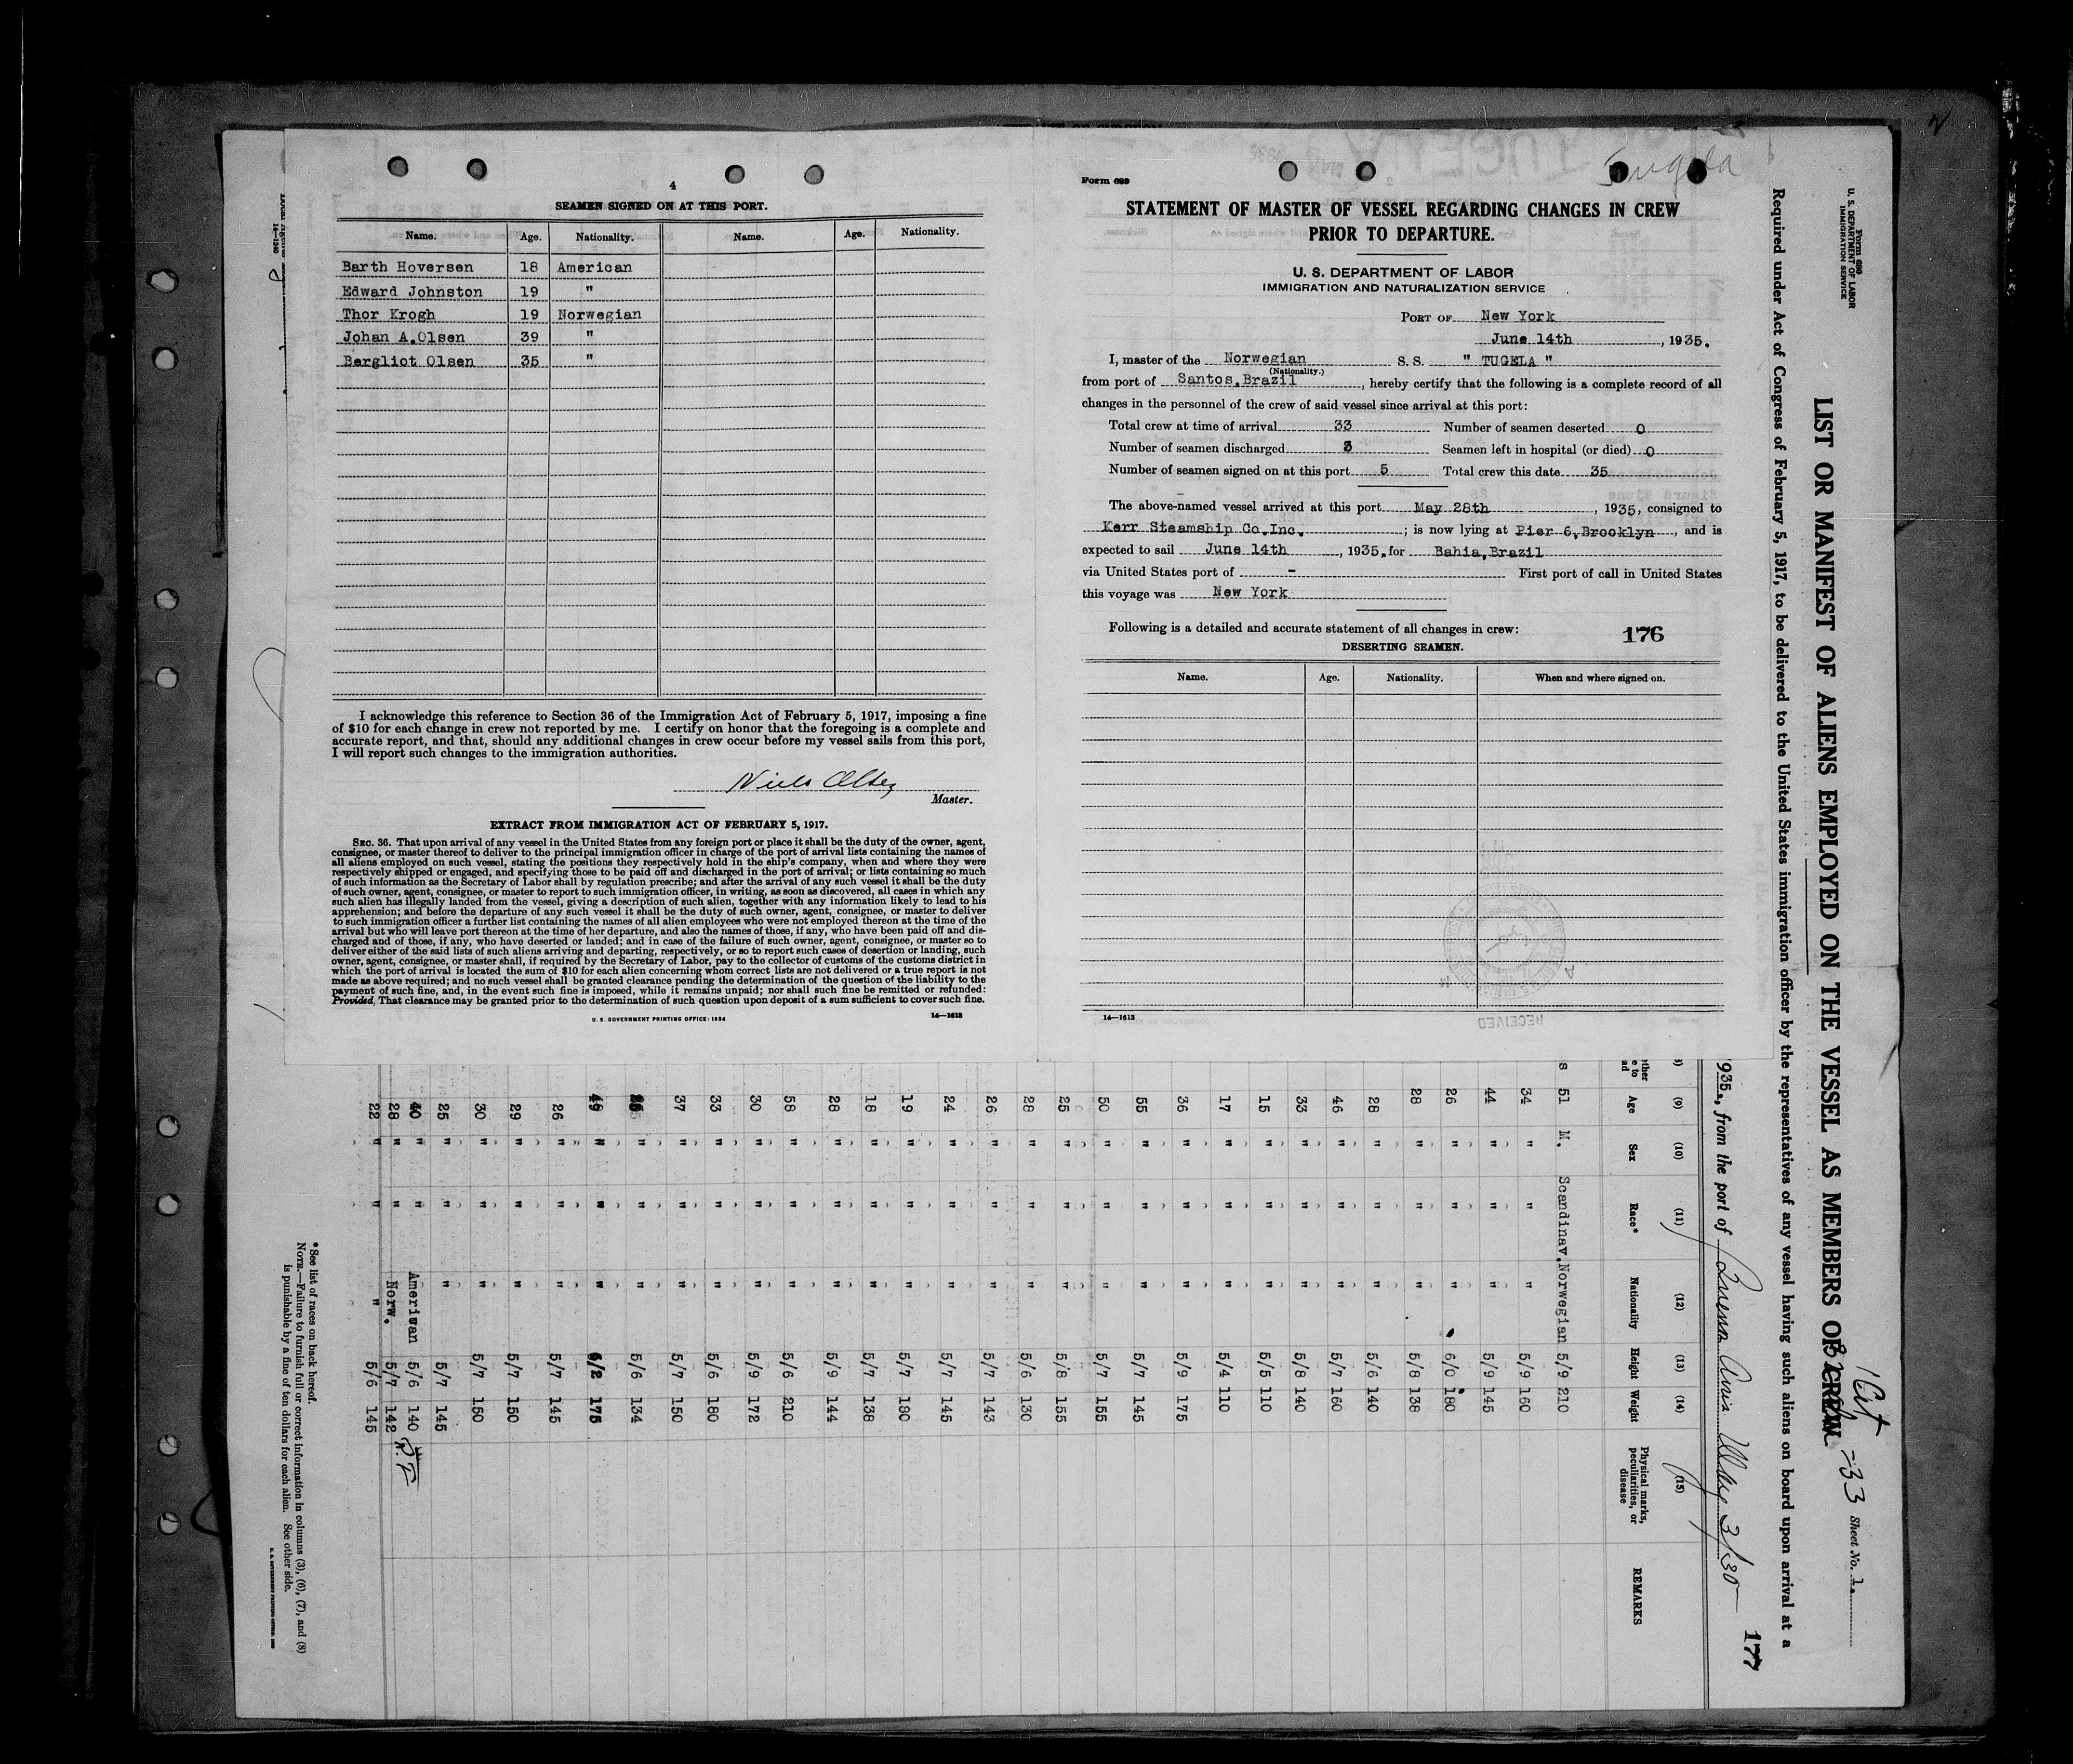 4
SEAMEN SIGNED ON AT THIS PORT.
Name. Age. Nationality. Name. Age. Nationality.
Barth Hoversen 18 American
Edward Johnston 19 "
Thor Krogh 19 Norwegian
Johan A.Olsen 39 "
Bergliot Olsen 35 "
I acknowledge this reference to Section 36 of the Immigration Act of February 5, 1917, imposing a fine
of $10 for each change in crew not reported by me. I certify on honor that the foregoing is a complete and
accurate report, and that, should any additional changes in crew occur before my vessel sails from this port,
I will report such changes to the immigration authorities.
Niels Olsen
Master.
EXTRACT FROM IMMIGRATION ACT OF FEBRUARY 5, 1917.
SEC. 36. That upon arrival of any vessel in the United States from any foreign port or place it shall be the duty of the owner, agent,
consignee, or master thereof to deliver to the principal immigration officer in charge of the port of arrival lists containing the names of
all aliens employed on such vessel, stating the positions they respectively hold in the ship's company, when and where they were
respectively shipped or engaged, and specifying those to be paid off and discharged in the port of arrival; or lists containing so much
of such information as the Secretary of Labor shall by regulation prescribe; and after the arrival of any such vessel it shall be the duty
of such owner, agent, consignee, or master to report to such immigration officer, in writing, as soon as discovered, all cases in which any
such alien has illegally landed from the vessel, giving a description of such alien, together with any information likely to lead to his
apprehension; and before the departure of any such vessel it shall be the duty of such owner, agent, consignee, or master to deliver
to such immigration officer a further list containing the names of all alien employees who were not employed thereon at the time of the
arrival but who will leave port thereon at the time of her departure, and also the names of those, if any, who have been paid off and dis-
charged and of those, if any, who have deserted or landed; and in case of the failure of such owner, agent, consignee, or master so to
deliver either of the said lists of such aliens arriving and departing, respectively, or so to report such cases of desertion or landing, such
owner, agent, consignee, or master shall, if required by the Secretary of Labor, pay to the collector of customs of the customs district in
which the port of arrival is located the sum of $10 for each alien concerning whom correct lists are not delivered or a true report is not
made as above required; and no such vessel shall be granted clearance pending the determination of the question of the liability to the
payment of such fine, and, in the event such fine is imposed, while it remains unpaid; nor shall such fine be remitted or refunded:
Provided, That clearance may be granted prior to the determination of such question upon deposit of a sum sufficient to cover such fine.
U. S. GOVERNMENT PRINTING OFFICE: 1934 14—1613
Tugela
Form 689
STATEMENT OF MASTER OF VESSEL REGARDING CHANGES IN CREW
PRIOR TO DEPARTURE.
U. S. DEPARTMENT OF LABOR
IMMIGRATION AND NATURALIZATION SERVICE
PORT OF New York
June 14th, 1935.
I, master of the Norwegian S. S. " TUGELA "
(Nationality.)
from port of Santos,Brazil, hereby certify that the following is a complete record of all
changes in the personnel of the crew of said vessel since arrival at this port:
Total crew at time of arrival 33 Number of seamen deserted 0
Number of seamen discharged 3 Seamen left in hospital (or died) 0
Number of seamen signed on at this port 5 Total crew this date 35
The above-named vessel arrived at this port May 28th, 1935, consigned to
Kerr Steamship Co.Inc.; is now lying at Pier 6,Brooklyn, and is
expected to sail June 14th, 1935, for Bahia,Brazil
via United States port of - First port of call in United States
this voyage was New York
Following is a detailed and accurate statement of all changes in crew: 176
DESERTING SEAMEN.
Name. Age. Nationality. When and where signed on.
14—1613
RECEIVED
Form 689
U. S. DEPARTMENT OF LABOR
IMMIGRATION SERVICE
LIST OR MANIFEST OF ALIENS EMPLOYED ON THE VESSEL AS MEMBERS OF CREW
1 Cit
=33 Sheet No. 1.
Required under Act of Congress of February 5, 1917, to be delivered to the United States immigration officer by the representatives of any vessel having such aliens on board upon arrival at a
935., from the port of Buenos Aires
177
(9) (10) (11) (12) (13) (14) (15)
Age Sex Race* Nationality Height Weight Physical marks, peculiarities, or disease REMARKS
s 51 M. Scandinav. Norwegian 5/9 210
34 " " " 5/9 160
44 " " " 5/9 145
26 " " " 6/0 180
28 " " " 5/8 138
28 " " " 5/6 140
46 " " " 5/7 160
33 " " " 5/8 140
15 " " " 5/5 110
17 " " " 5/4 110
36 " " " 5/9 175
55 " " " 5/7 145
50 " " " 5/7 155
25 " " " 5/8 155
28 " " " 5/6 130
26 " " " 5/7 143
24 " " " 5/7 145
19 " " " 5/7 180
18 " " " 5/7 138
28 " " " 5/9 144
58 " " " 5/6 210
30 " " " 5/9 172
33 " " " 5/6 180
37 " " " 5/7 150
" " " 5/6 134
49 " " " 6/2 175
26 " " " 5/7 145
29 " " " 5/7 150
30 " " " 5/7 150
25 " " " 5/7 145
40 " " American 5/6 140
28 " " Norw. 5/7 142
22 " " " 5/6 145
*See list of races on back hereof.
NOTE.—Failure to furnish full or correct information in columns (3), (6), (7), and (8)
is punishable by a fine of ten dollars for each alien. See other side.
14—1240